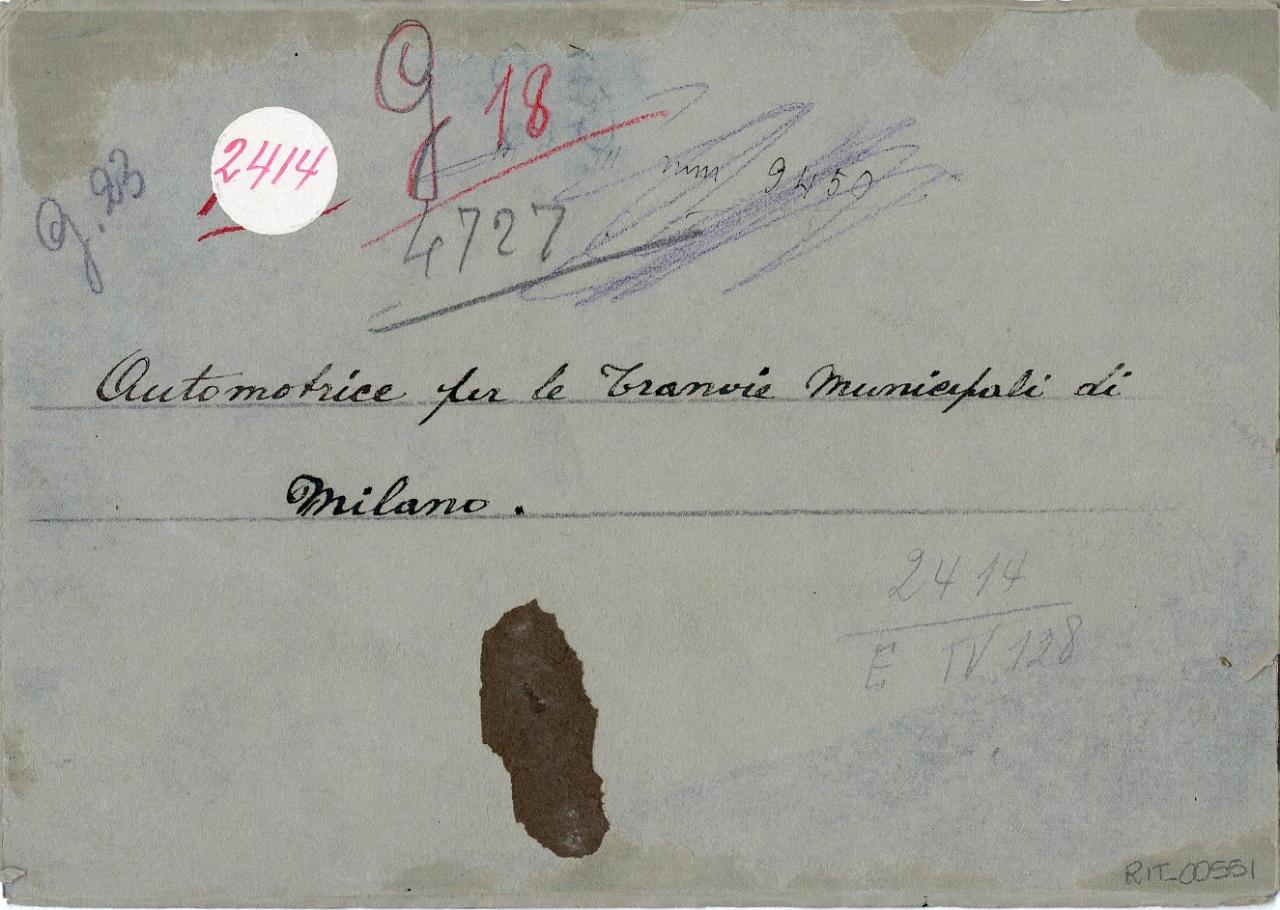 g 18
g. 23
2414
mm 9450
4727
Automotrice per le Tranvie Municipali di
Milano.
2414
E IV 128
RIT-00551